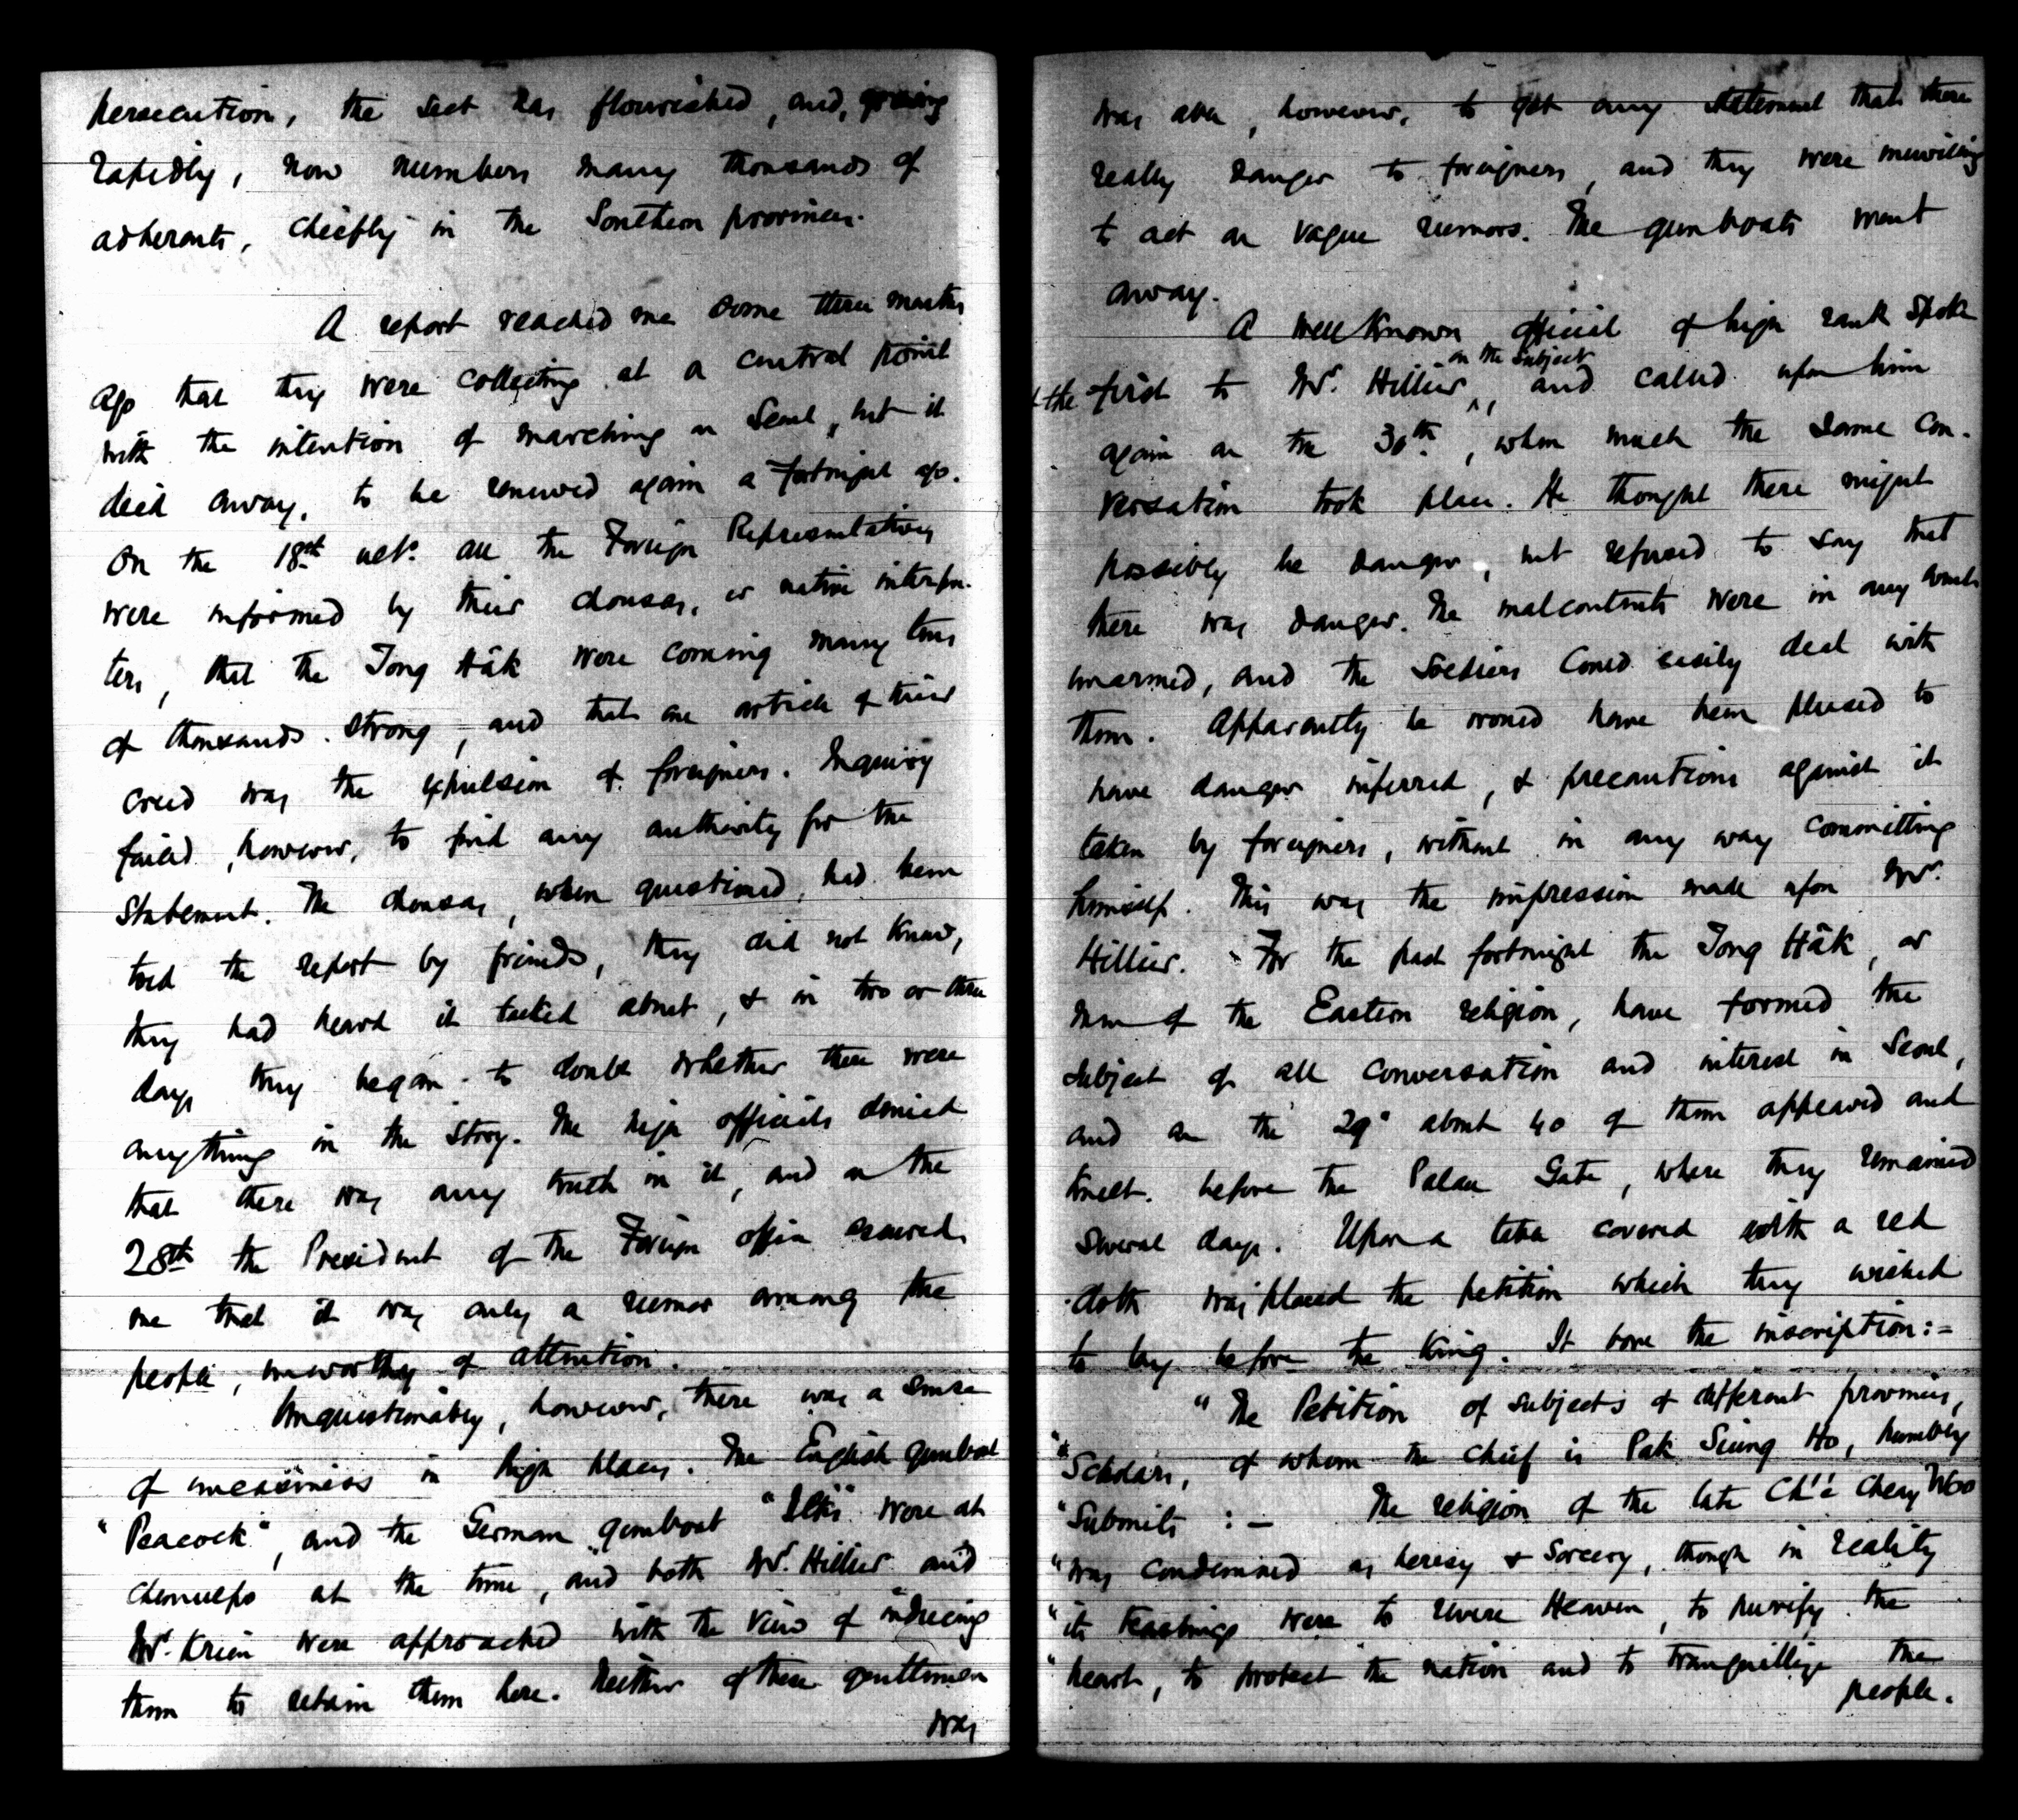 persecution, the sect has flourished, and, growing
rapidly, now numbers many thousands of
adherents, chiefly in the Southern provinces.
A report reached me some three months
ago that they were collecting at a central point
with the intention of marching on Seoul, but it
died away, to be renewed again a fortnight ago.
On the 18th ulto. all the Foreign Representatives
were informed by their chousas, or native interpre-
ters, that the Tong Hâk were coming many tens
of thousands strong, and that one article of their
creed was the expulsion of foreigners. Inquiry
failed, however, to find any authority for the
statement. The chousas, when questioned, had been
told the report by friends, they did not know,
they had heard it talked about, & in two or three
days they began to doubt whether there were
anything in the story. The high officials denied
that there was any truth in it, and on the
28th the President of the Foreign office assured
me that it was only a rumor among the
people, unworthy of attention.
Unquestionably, however, there was a sense
of uneasiness in high places. The English gunboat
"Peacock", and the German gunboat "Iltis" were at
Chemulpo at the time, and both Mr. Hillier and
Mr. Krien were approached with the view of inducing
them to retain them here. Neither of these gentlemen
was
was able, however, to get any statement that there
really danger to foreigners, and they were unwilling
to act on vague rumors. The gunboats went
away.
A well known official of high rank spoke
on the subject
the first to Mr. Hillier, and called upon him
again on the 30th, when much the same con-
versation took place. He thought there might
possibly be danger, but refused to say that
there was danger. The malcontents were in any
unarmed, and the soldiers could easily deal with
them. Apparently he would have been pleased to
have danger inferred, & precautions against it
taken by foreigners, without in any way committing
himself. This was the impression made upon Mr.
Hillier. For the past fortnight the Tong Hâk, or
men of the Eastern religion, have formed the
subject of all conversation and interest in Seoul,
and on the 29" about 40 of them appeared and
knelt before the Palace Gate, where they remained
several days. Upon a table covered with a red
cloth was placed the petition which they wished
to lay before the King. It bore the inscription:=
"The Petition of subjects of different provinces,
"Scholars, of whom the chief is Pak Seung Ho, humbly
"Submits :— The religion of the late Ch'é Chey Woo
"was condemned as heresy & sorcery, though in reality
"its teachings were to revere Heaven, to purify the
"heart, to protect the nation and to tranquillize the
people.